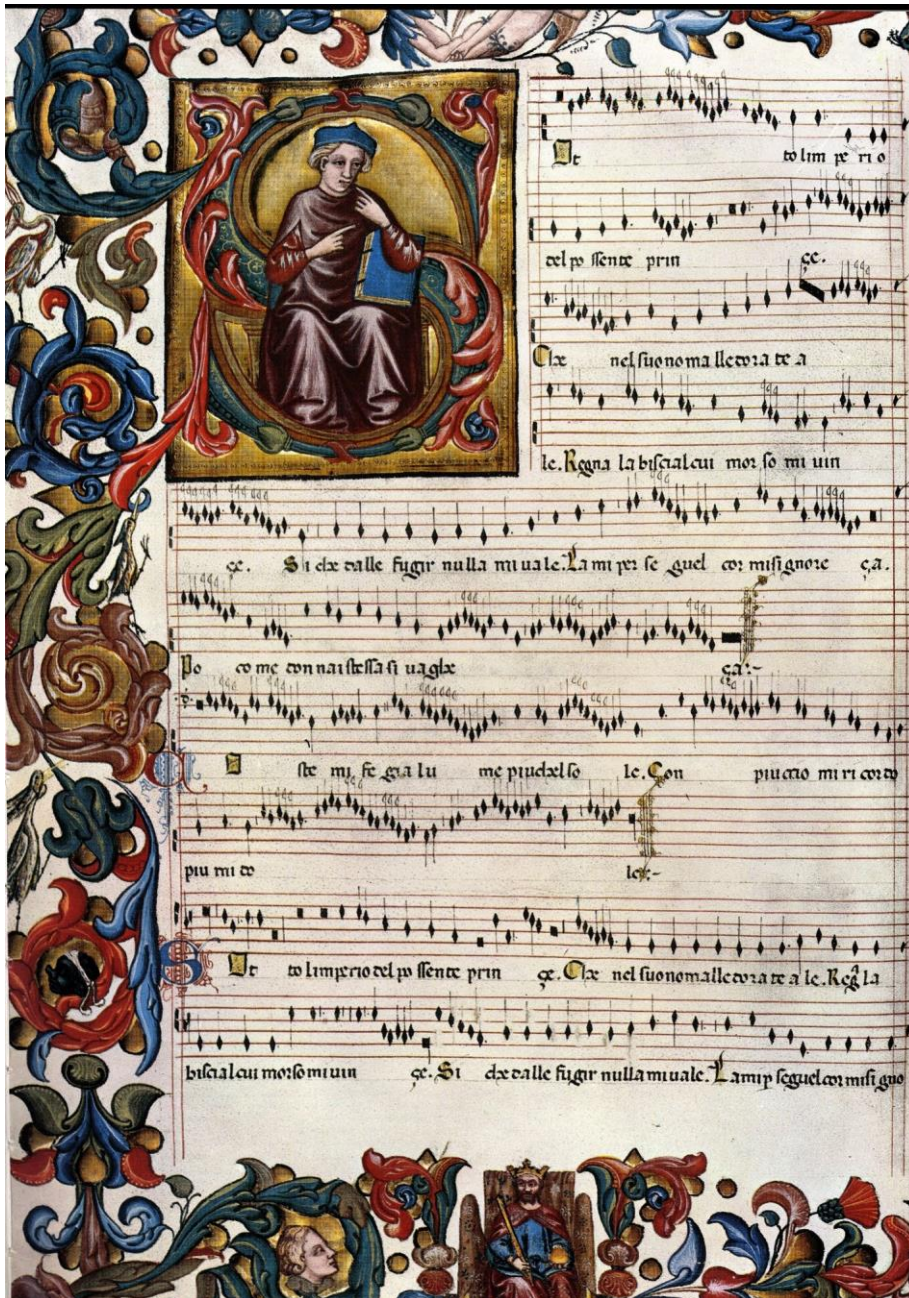 Ot to lim pe rio
del po ssente prin çe.
Che nel suo nom alle dora te a
le. Regna la biscial cui mor so mi uin
çe. Si che dalle fugir nulla mi uale. La mi per se guel cor misignore ça.
Po co me don na istessa si uaghe ça:-
U ste mi fe gia lu me piu chel so le. Con piu cio mi ricordo
piu mi do le:-
S Ot to limperio del po ssente prin çe. Che nel suo nom alle dora te a le. Reg̃ la
biscial cui morso mi uin çe. Si che dalle fugir nulla mi uale. La mi p seguel cor mi signo